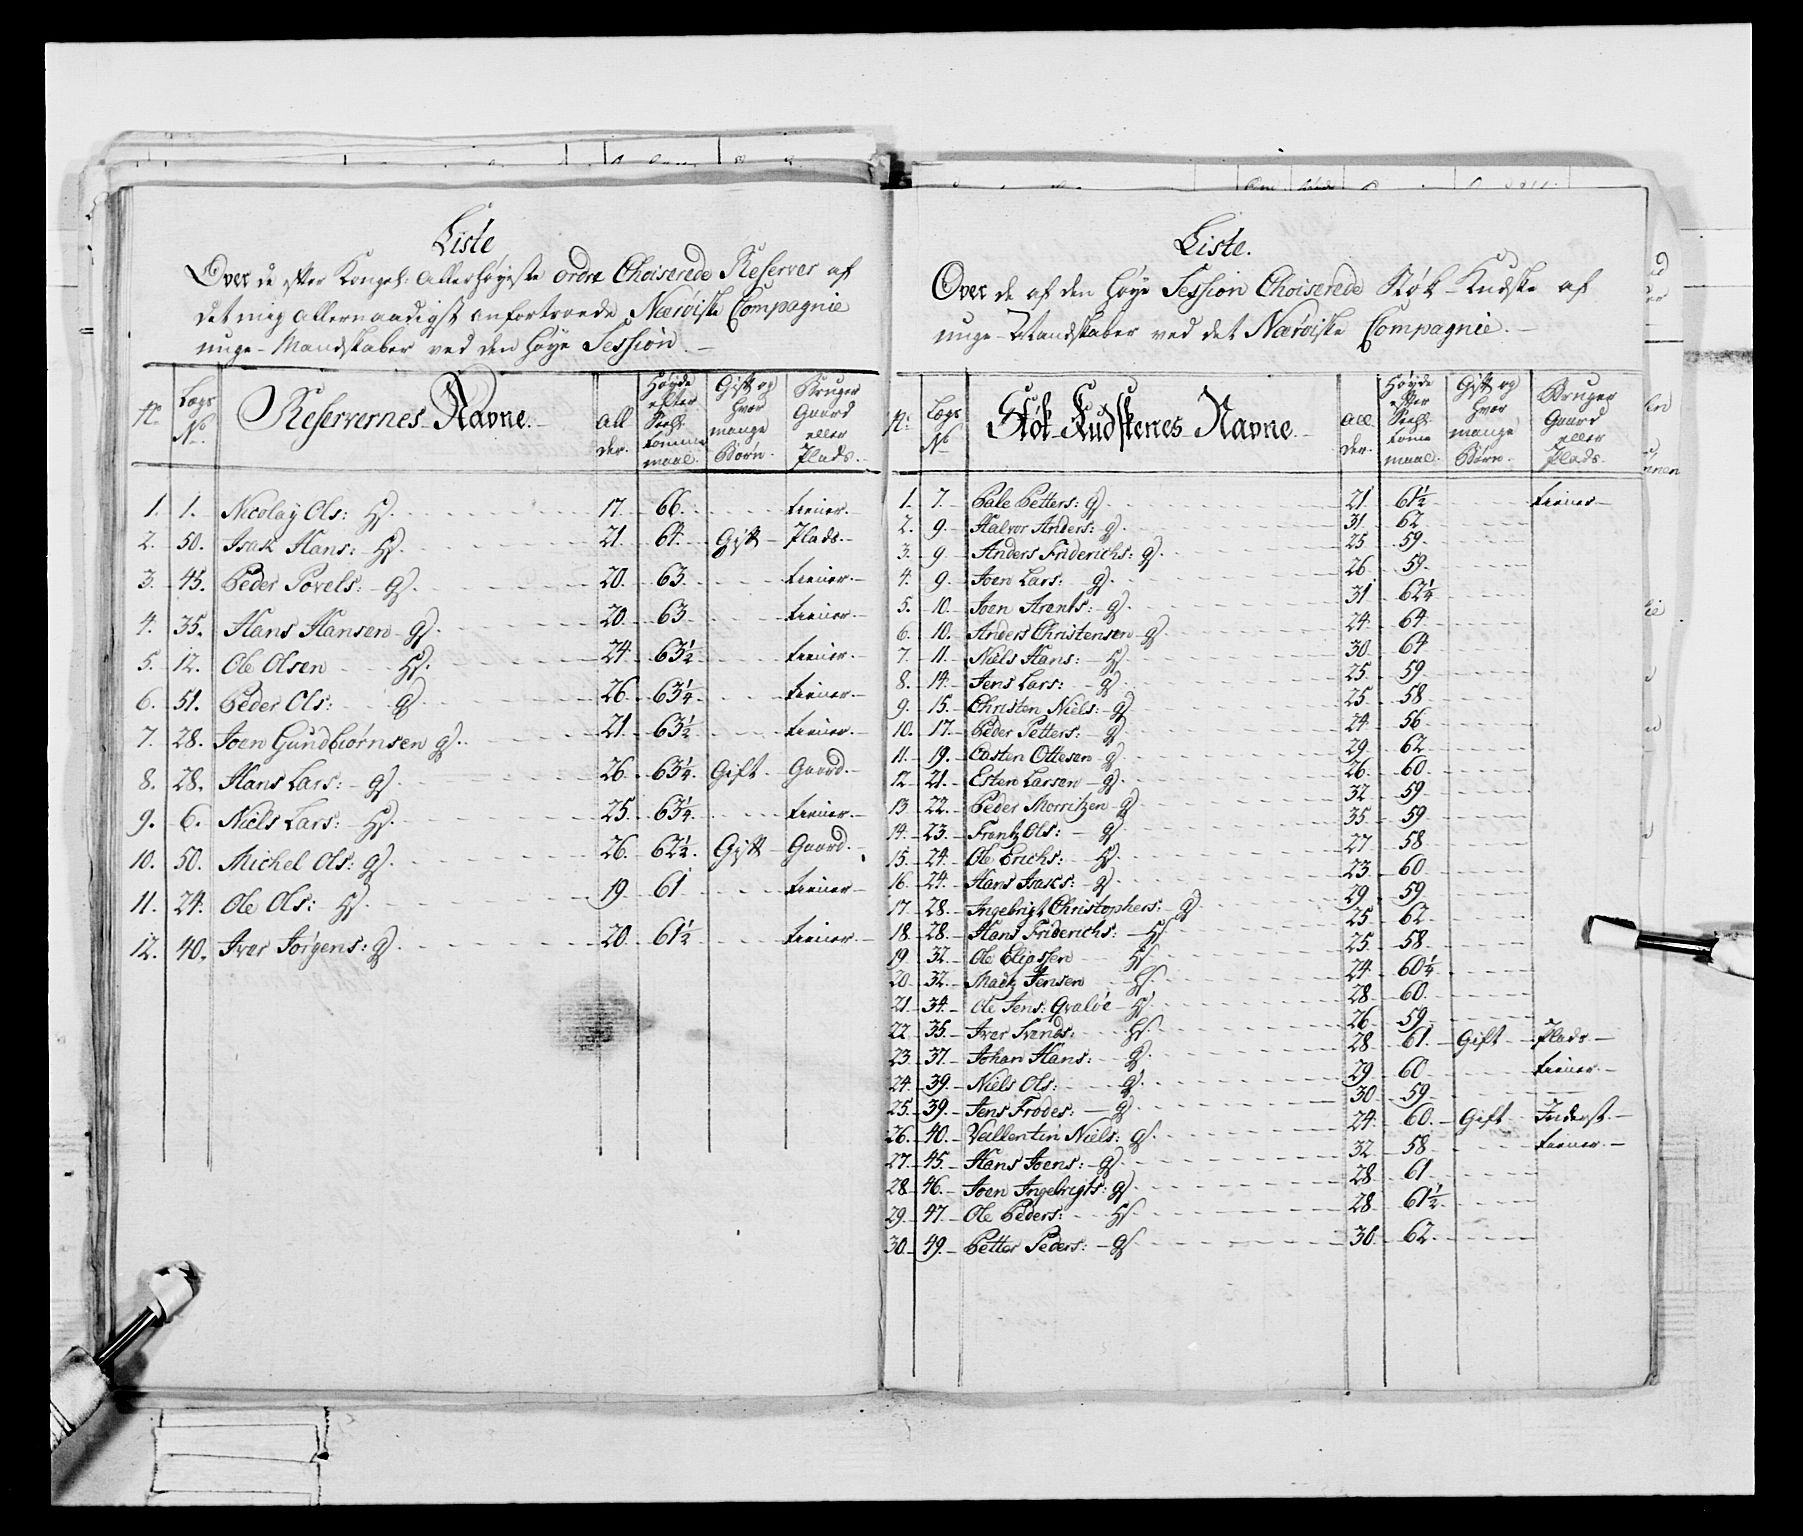 Liste
Over de efter Kongel: Allerhøyeste ordre Choiserede Reserver af
det mig allernaadigst anfortroede Nærøiske Compagnie
unge Mandskaber ved den høye Session.
No. Lægs No. Reservernes Navne. All der. Høyde efter Reehl. tomme maal. Gift og hvor mange Børn. Bruger Gaard eller Plads.
1. 1. Nicolaÿ Ols: H. 17. 66. tiener.
2. 50. Isak Hans: H. 21. 64. Gift Plads.
3. 45. Peder Povels: G. 20. 63. tiener.
4. 35. Hans Hansen G. 20. 63 tiener.
5. 12. Ole Olsen H. 24. 63½ tiener.
6. 51. Peder Ols: G. 26. 63¼ tiener.
7. 28. Joen Gundbiørnsen G. 21. 63½ tiener.
8. 28. Hans Lars: G. 26. 63¼. Gift. Gaard.
9. 6. Niels Lars: H. 25. 63¼ tiener.
10. 50. Michel Ols: G. 26. 62½. Gift Gaard.
11. 24. Ole Ols: H. 19. 61 tiener.
12. 40. Iver Jørgens: G. 20. 61½ tiener.
Liste.
Over de af den høye Session Choiserede Støk-Kudske af
unge Mandskaber ved det Nærøiske Compagnie.
No. Lægs No Støk Kudskenes Navne. All der. Høyde efter Reehl. tome maal. Gift og hvor mange Børn. Bruger Gaard eller Plads.
1. 7. Pale Petters: G. 21. 61½ tiener
2. 9. Halvor Anders: G. 31. 62
3. 9. Anders Friderichs: G. 25. 59.
4. 9. Joen Lars: G. 26. 59.
5. 10. Joen Arents: G. 31. 62¼
6. 10. Anders Christensen G. 24. 64.
7. 11. Niels Hans: H. 30. 64
8. 14. Jens Lars: G. 25. 59
9. 15. Christen Niels: G. 25. 58
10. 17. Peder Petters: G. 24. 56
11. 19. Casten Ottesen G. 29. 62
12. 21. Esten Larsen G. 26. 60
13. 22. Peder Morritzen G. 32. 59
14. 23. Frantz Ols: G. 35. 59
15. 24. Ole Erichs: H. 27. 58
16. 24. Hans Isaks: G. 23. 60
17. 28. Ingebrigt Christophers: G. 29. 59
18. 28. Hans Friderichs: H. 25. 62
19. 32. Ole Eliassen H. 25. 58
20. 32. Matz Jensen H. 24. 60¼
21. 34. Ole Jens: Qvaløe H. 28. 60.
22. 35. Iver Svends: H. 26. 59
23. 37. Johan Hans: G. 28. 61. Gift Plads
24. 39. Niels Ols: G. 29. 60 tiener
25. 39. Jens Frodes: G. 30. 59
26. 40. Vallentin Niels: G. 24. 60. Gift Inderst.
27. 45. Hans Joens: G. 32. 58 tiener
28. 46. Joen Ingebrigts: G. 28. 61
29. 47. Ole Peders: H. 28. 61½
30. 49. Petter Peders: G. 30. 62.